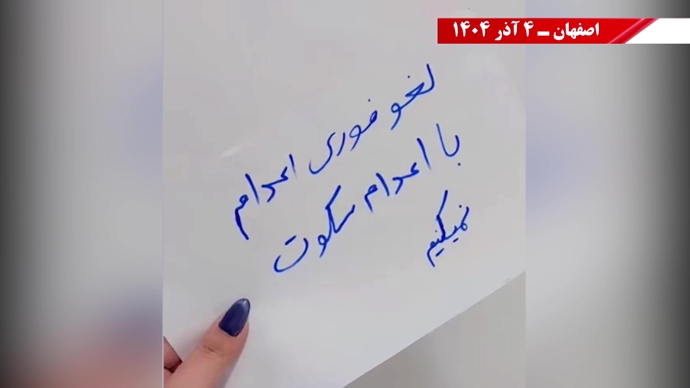 اصفهان ــ ۴ آذر ۱۴۰۴
لغو فوری اعدام
با اعدام سکوت
نمیکنیم